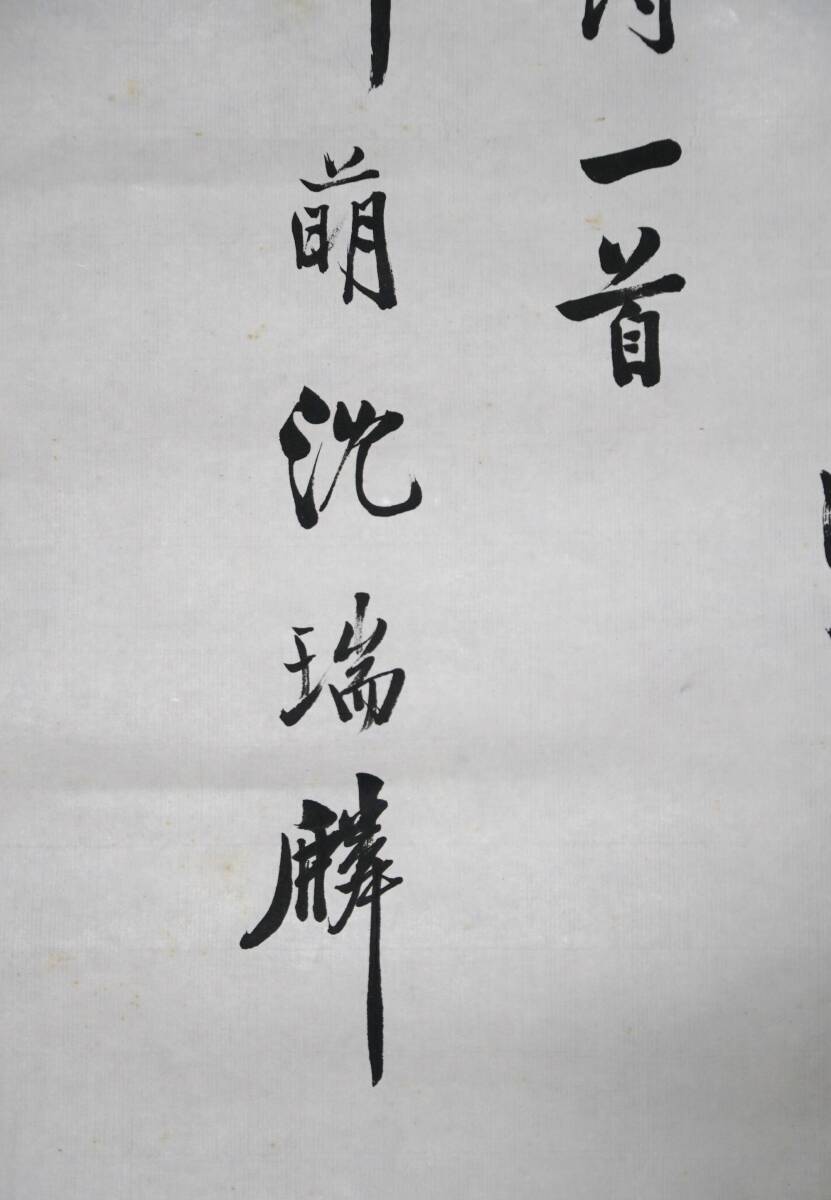 一首
萌沈瑞麟